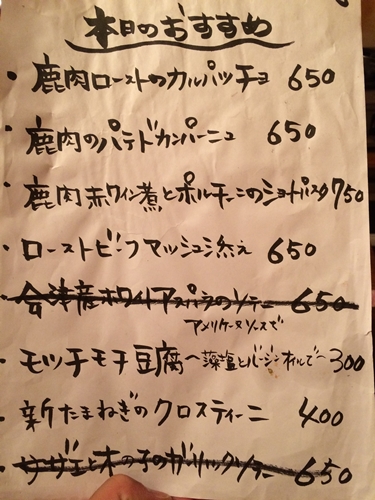 本日のおすすめ
・鹿肉ローストのカルパッチョ 650
・鹿肉のパテドカンパーニュ 650
・鹿肉赤ワイン煮とポルチーニのショートパスタ 750
・ローストビーフマッシュ添え 650
・会津産ホワイトアスパラのソテー 650
アメリケーヌソースで
・モッチモチ豆腐〜藻塩とバージンオイルで〜300
・新たまねぎのクロスティーニ 400
・サザエと木の子のガーリックソテー 650